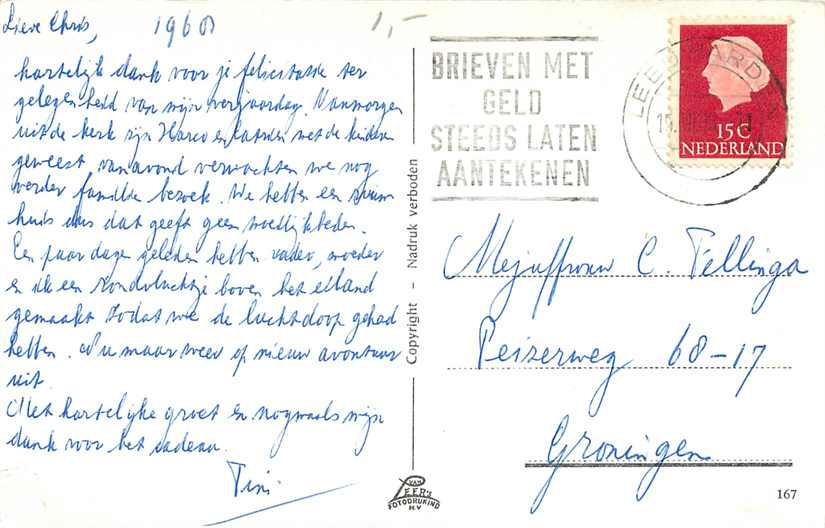 Lieve Chris, 1968
hartelijk dank voor je felicitatie ter
gelegenheid van mijn verjaardag. Vanmorgen
uit de kerk zijn Harco en met de kinderen
geweest vanavond verwachten we nog
verder familie bezoek. We hebben een ruim
huis dus dat geeft geen moeilijkheden.
Een paar dagen geleden hebben vader, moeder
en ik een rondvluchtje boven het eiland
gemaakt zodat we de luchtdoop gehad
hebben. Nu maar weer op nieuw avontuur
uit.
Met hartelijke groet en nogmaals mijn
dank voor het cadeau.
Tini
1,-
BRIEVEN MET
GELD
STEEDS LATEN
AANTEKENEN
LEEUWARDEN
15C
NEDERLAND
Copyright - Nadruk verboden
Mejuffrouw C. Tellinga
Peizerweg 68-17
Groningen
VAN
LEER'S
FOTODRUKIND
N.V
167